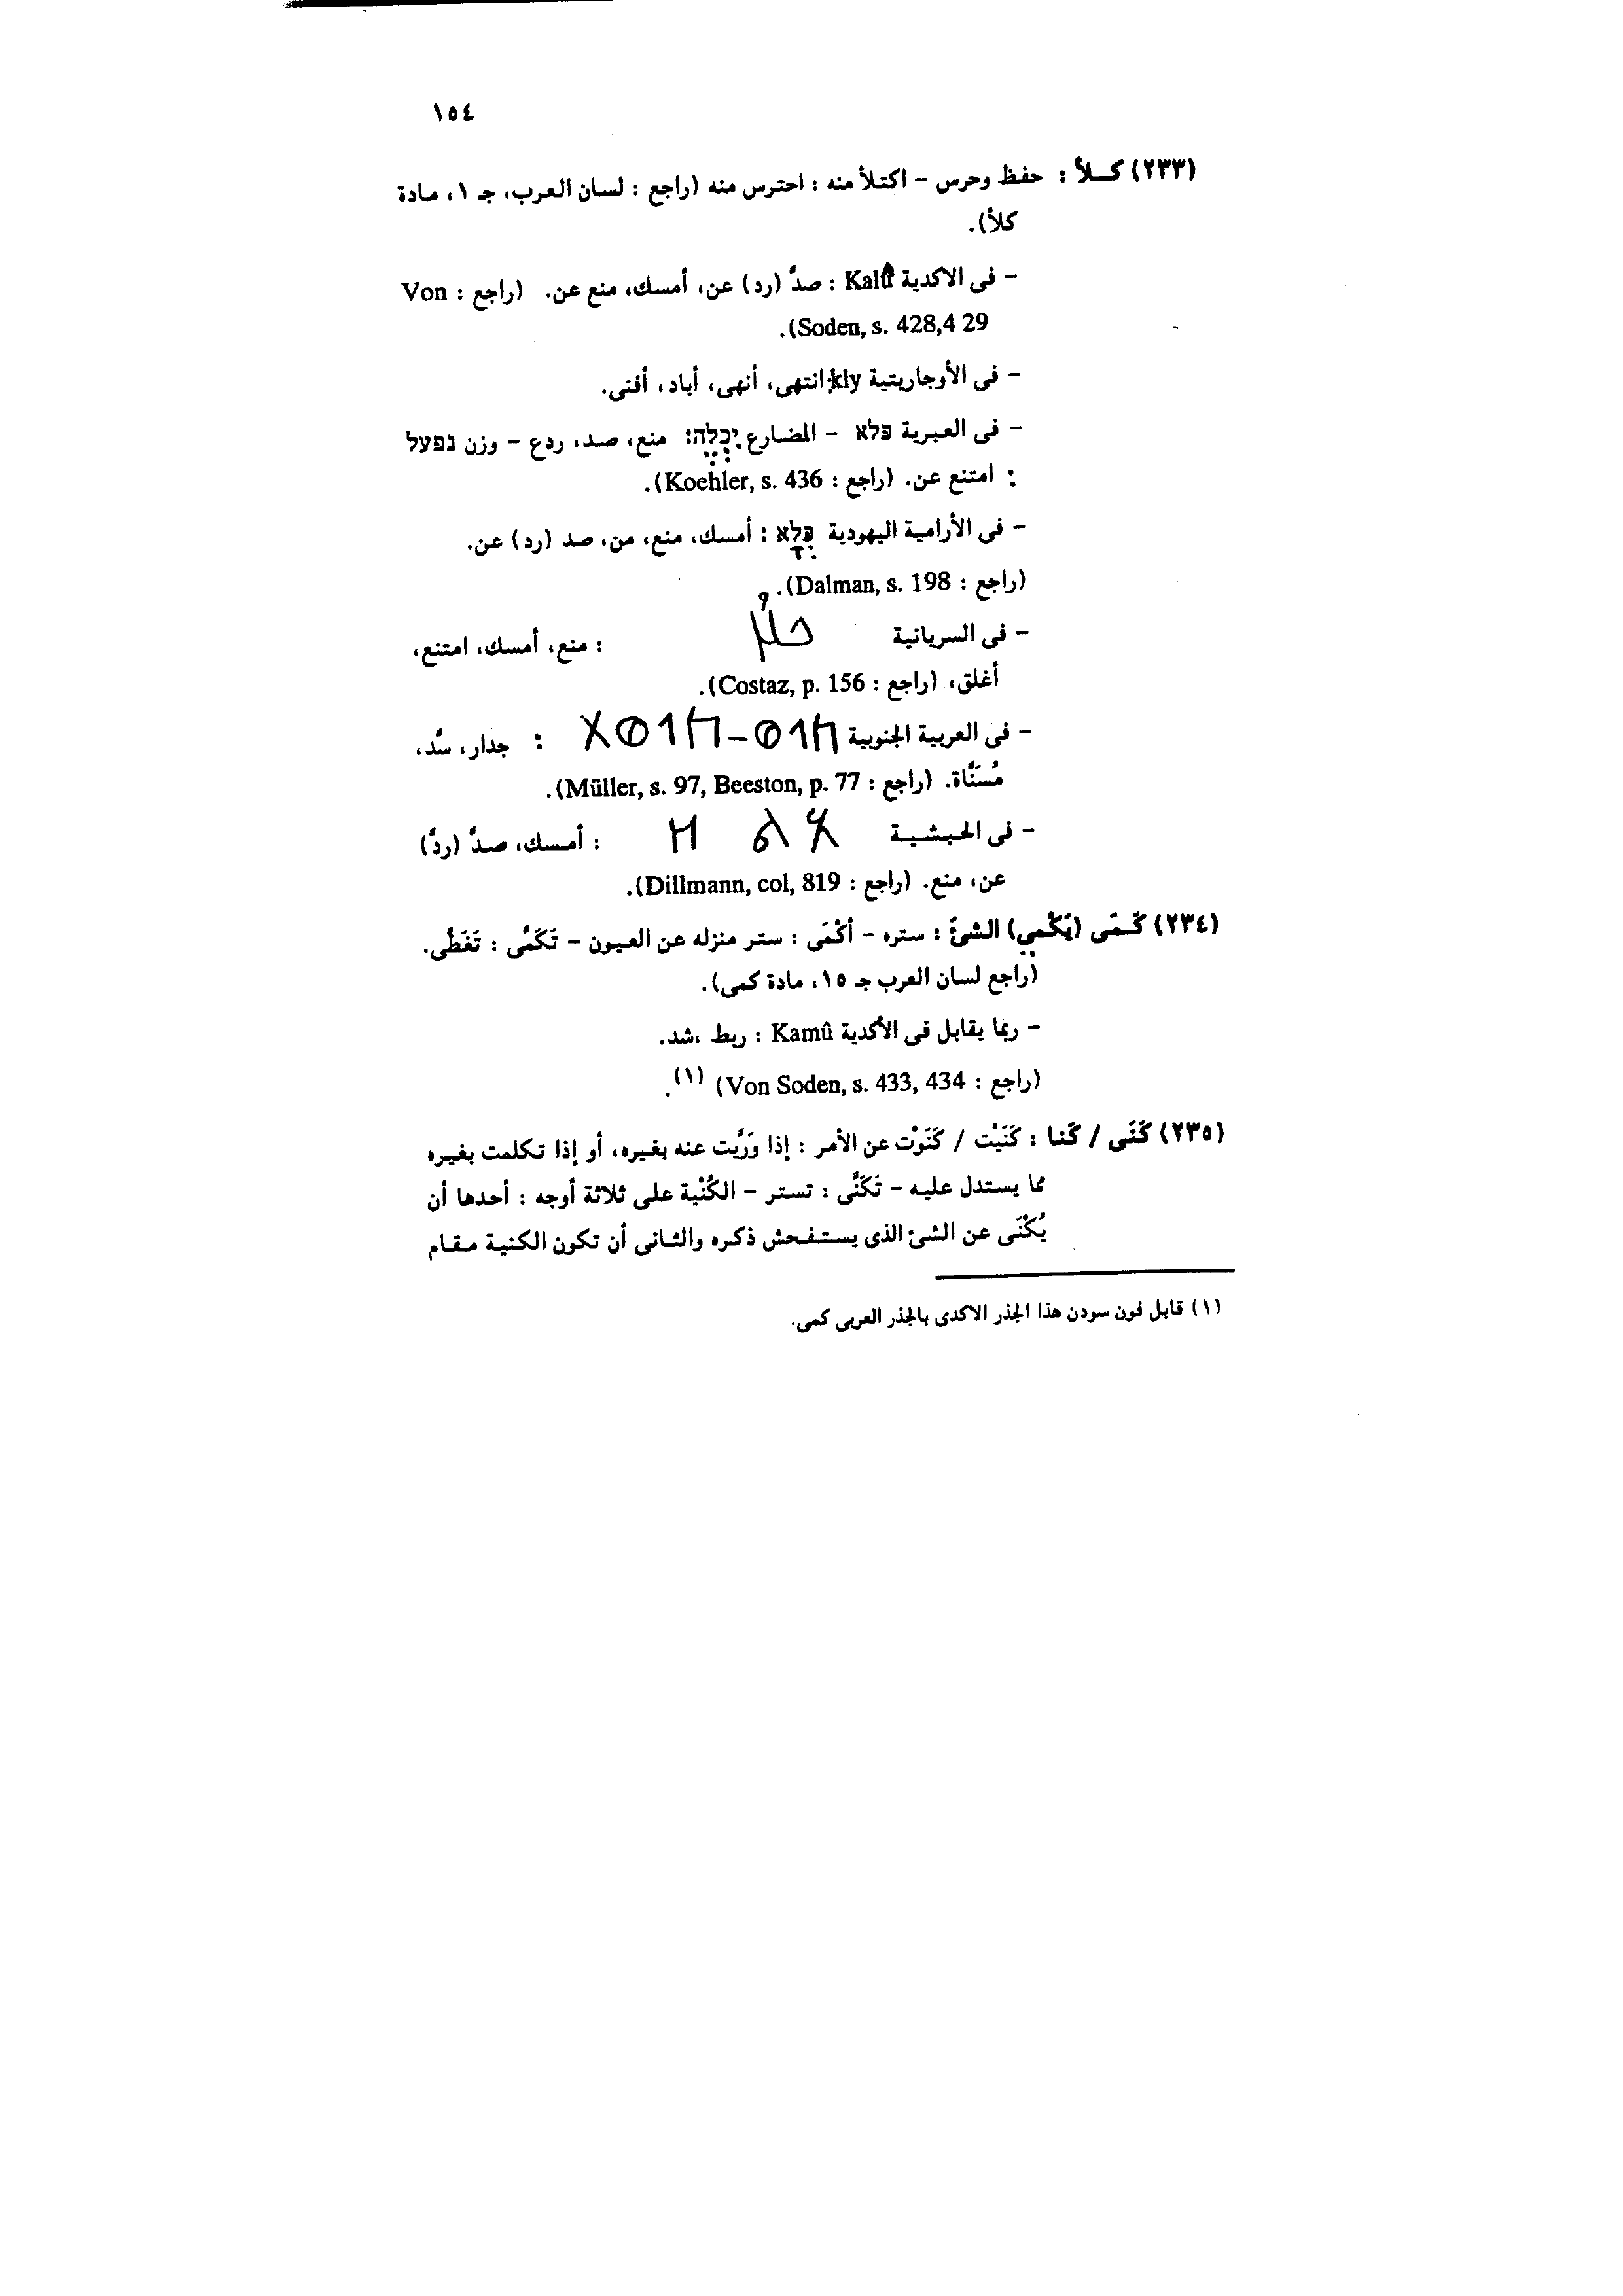 ١٥٤
(٢٣٣) كلأ : حفظ وحرس – اكتلأ منه : احترس منه (راجع : لسان العرب، جـ ١، مادة
كلأ).
– فى الاكدية Kalû : صدَّ (رد) عن، أمسك، منع عن. (راجع : Von
Soden, s. 428,4 29).
– فى الأوجاريتية kly: انتهى، أنهى، أباد، أفنى.
– فى العبرية כלא – المضارع יִכְלֶה: منع، صد، ردع – وزن נפעל
: امتنع عن. (راجع : Koehler, s. 436).
– فى الأرامية اليهودية כְּלָא : أمسك، منع، من، صد (رد) عن.
(راجع : Dalman, s. 198).
– فى السريانية ܟܠܐ : منع، أمسك، امتنع،
أغلق، (راجع : Costaz, p. 156).
– فى العربية الجنوبية 𐩫𐩡𐩥-𐩫𐩡𐩥𐩩 : جدار، سَّد،
مُسَنَّاة. (راجع : Müller, s. 97, Beeston, p. 77).
– فى الحبشية : أمسك، صدَّ (ردَّ)
عن، منع. (راجع : Dillmann, col, 819).
(٢٣٤) كَمَى (يَكْمِي) الشئَ : ستره – أكْمَى : ستر منزله عن العيون – تَكَمَّى : تَغَطَّى.
(راجع لسان العرب جـ ١٥، مادة كمى).
– ربما يقابل فى الأكدية Kamû : ربط ،شد.
(راجع : Von Soden, s. 433, 434) (١).
(٢٣٥) كَنَى / كَنا : كَنَيْت / كَنَوْت عن الأمر : إذا وَرَّيت عنه بغيره، أو إذا تكلمت بغيره
مما يستدل عليه – تَكَنَّى : تستر – الكُنْية على ثلاثة أوجه : أحدها أن
يُكْنَى عن الشئ الذى يستفحش ذكره والثانى أن تكون الكنية مقام
(١) قابل فون سودن هذا الجذر الاكدى بالجذر العربى كمى.